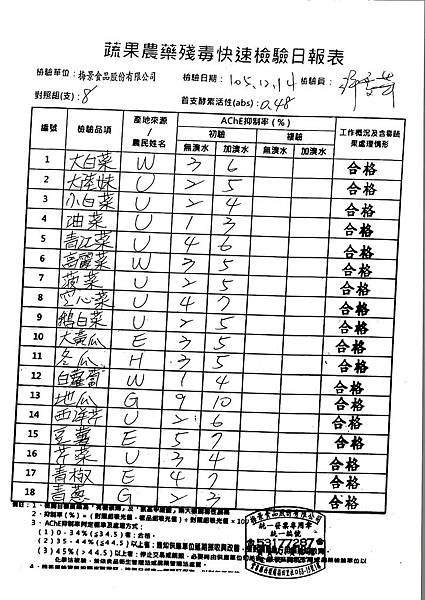 蔬果農藥殘毒快速檢驗日報表
檢驗單位：梅景食品股份有限公司 檢驗日期：105.12.14 檢驗員：
對照組(支)：8 首支酵素活性(abs)：0.48
編號 檢驗品項 產地來源/農民姓名 AChE抑制率(%) 工作概況及含毒蔬果處理情形
初驗 複驗
無溴水 加溴水 無溴水 加溴水
1 大白菜 W 3 6 合格
2 大陸妹 U 2 5 合格
3 小白菜 U 2 4 合格
4 油菜 U 1 3 合格
5 青江菜 U 4 6 合格
6 高麗菜 W 3 5 合格
7 菠菜 U 2 5 合格
8 空心菜 U 4 7 合格
9 鵝白菜 U 2 5 合格
10 大黃瓜 E 3 5 合格
11 冬瓜 H 3 5 合格
12 白蘿蔔 W 1 4 合格
13 地瓜 G 9 10 合格
14 西洋芹 U 2 6 合格
15 豆薯 E 5 7 合格
16 芹菜 U 3 4 合格
17 青椒 E 4 7 合格
18 青蔥 G 2 3 合格
2．抑制率(%)＝(對照組吸光值－樣品組吸光值)÷對照組吸光值×100
3．AChE抑制率判定標準及處理方式：
(1) 0-34% (≦34.5)者：合格。
(2) 35-44% (≦44.5)以上者：通知供應單位延期採收與改善，
(3) 45% (＞44.5)以上者：停止交易或銷毀，
梅景食品股份有限公司
統一發票專用章
統一編號
53177287